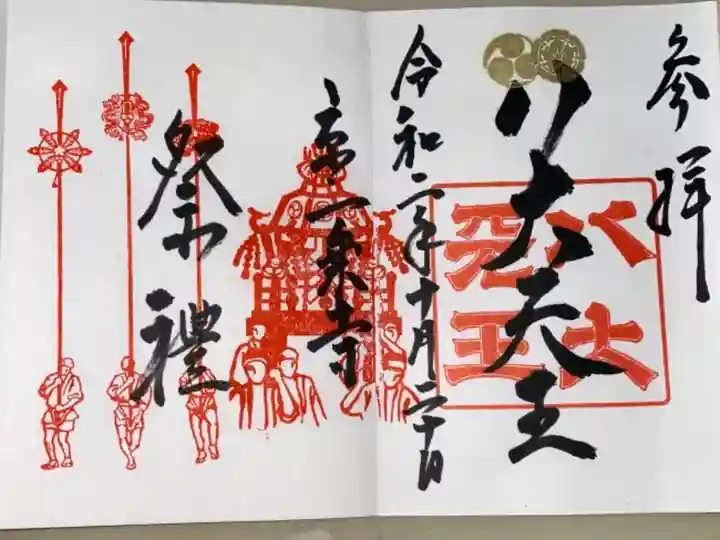 参拝
八大天王
八大天王
令和二年十月二十日
京一乗寺
祭禮